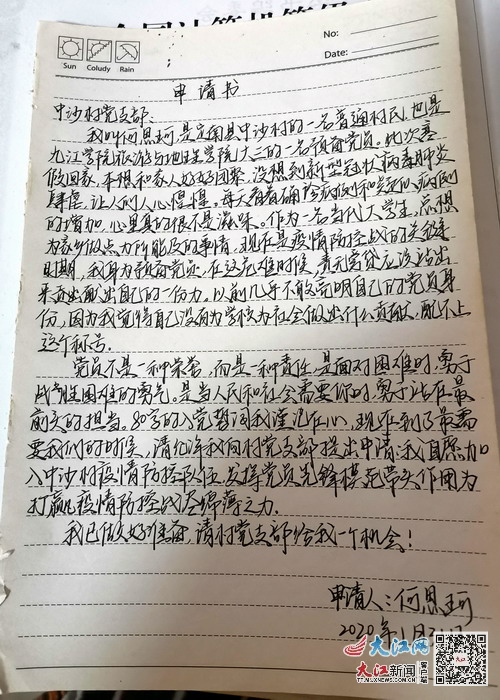 No:
Date:
Sun Coludy Rain
申请书
中沙村党支部：
我叫何思珂，是定南县中沙村的一名普通村民，也是
九江学院旅游与地理学院大三的一名预备党员。此次寒
假回家，本想和家人好好团聚，没想到新型冠状病毒肺炎
肆虐，让人们人心惶惶。每天看着确诊病例和疑似病例
的增加，心里真的很不是滋味。作为一名当代大学生，总想
为家乡做点力所能及的事情。现在是疫情防控战的关键
时期，我身为预备党员，在这危难时候，责无旁贷应该站出
来贡献出自己的一份力。以前几乎不敢亮明自己的党员身
份，因为我觉得自己没有为学校为社会做出什么贡献，配不上
这个称号。
党员不是一种荣誉，而是一种责任，是面对困难时，勇于
战胜困难的勇气。是当人民和社会需要你时，勇于站在最
前头的担当。80字的入党誓词我谨记在心，现在到了最需
要我们的时候，请允许我向村党支部提出申请：我自愿加
入中沙村疫情防控队伍，发挥党员先锋模范带头作用，为
打赢疫情防控战尽绵薄之力。
我已做好准备，请村党支部给我一个机会！
申请人：何思珂
2020年1月31日
大江网
大江新闻 客户端